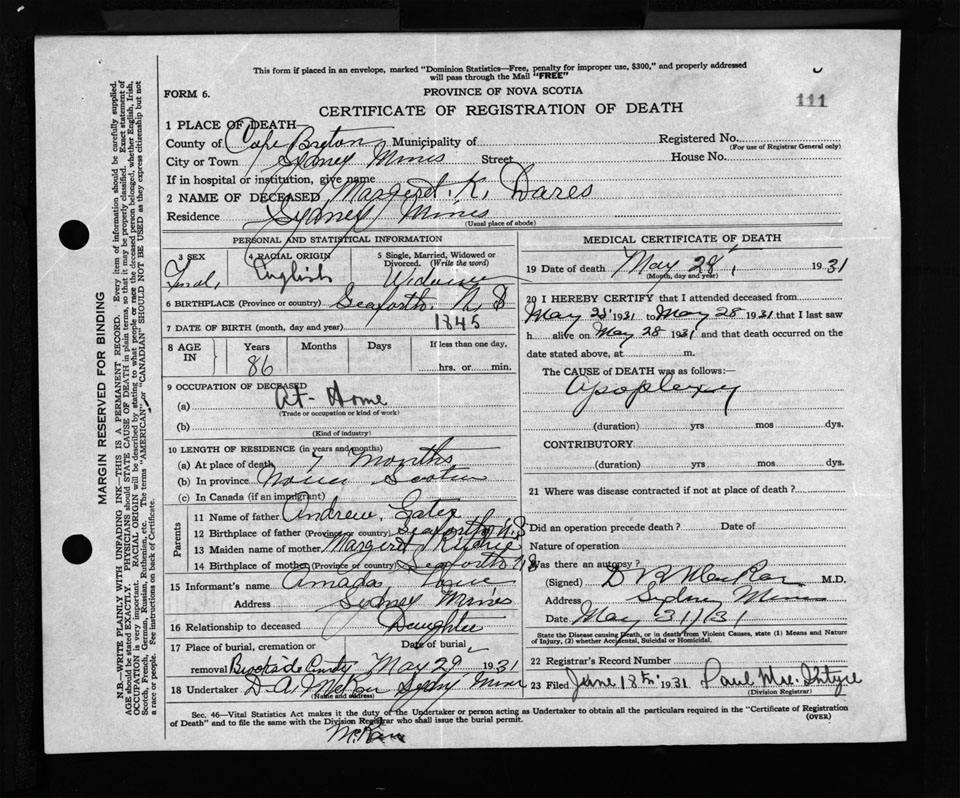 This form if placed in an envelope, marked "Dominion Statistics—Free, penalty for improper use, $300," and properly addressed
will pass through the Mail "FREE"
FORM 6.
PROVINCE OF NOVA SCOTIA
111
CERTIFICATE OF REGISTRATION OF DEATH
1 PLACE OF DEATH
County of Cape Breton Municipality of Registered No.
(For use of Registrar General only)
City or Town Sydney Mines Street House No.
If in hospital or institution, give name
2 NAME OF DECEASED Margaret K. Dares
Residence Sydney Mines
(Usual place of abode)
PERSONAL AND STATISTICAL INFORMATION
3 SEX 4 RACIAL ORIGIN 5 Single, Married, Widowed or
Divorced. (Write the word)
English Widow
6 BIRTHPLACE (Province or country) Seaforth, N. S
7 DATE OF BIRTH (month, day and year) 1845
8 AGE IN Years Months Days If less than one day,
86 hrs. or min.
9 OCCUPATION OF DECEASED
(a) At-Home
(Trade or occupation or kind of work)
(b)
(Kind of industry)
10 LENGTH OF RESIDENCE (in years and months)
(a) At place of death 7 months
(b) In province Nova Scotia
(c) In Canada (if an immigrant)
Parents
11 Name of father Andrew
12 Birthplace of father (Province or country) Seaforth N.S
13 Maiden name of mother Margaret Ritchie
14 Birthplace of mother (Province or country) Seaforth N.S
15 Informant's name
Address Sydney Mines
16 Relationship to deceased Daughter
17 Place of burial, cremation or Date of burial,
removal Brookside May 29 1931
18 Undertaker D. A. Sydney Mines
(Name and address)
MEDICAL CERTIFICATE OF DEATH
19 Date of death May 28, 1931
(Month, day and year)
20 I HEREBY CERTIFY that I attended deceased from
May 1931 to May 28 1931 that I last saw
h alive on May 28 1931 and that death occurred on the
date stated above, at m.
The CAUSE of DEATH was as follows:
Apoplexy
(duration) yrs mos dys.
CONTRIBUTORY
(duration) yrs. mos. dys.
21 Where was disease contracted if not at place of death?
Did an operation precede death? Date of
Nature of operation
Was there an autopsy?
(Signed) M.D.
Address Sydney Mines
Date May 31/31
State the Disease causing Death, or in death from Violent Causes, state (1) Means and Nature
of Injury, (2) whether Accidental, Suicidal or Homicidal.
22 Registrar's Record Number
23 Filed June 18th 1931 Paul
(Division Registrar)
Sec. 46—Vital Statistics Act makes it the duty of the Undertaker or person acting as Undertaker to obtain all the particulars required in the "Certificate of Registration
of Death" and to file the same with the Division Registrar who shall issue the burial permit.
(OVER)
MARGIN RESERVED FOR BINDING
N.B.—WRITE PLAINLY WITH UNFADING INK—THIS IS A PERMANENT RECORD. Every item of information should be carefully supplied.
AGE should be stated EXACTLY. PHYSICIANS should STATE CAUSE OF DEATH in plain terms, so that it may be properly classified. Exact statement of
OCCUPATION is very important. RACIAL ORIGIN will be described by stating to what people or race the deceased person belonged, whether English, Irish,
Scotch, French, German, Russian, Ruthenian, etc. The terms "AMERICAN" or "CANADIAN" SHOULD NOT BE USED as they express citizenship but not
a race or people. See instructions on back of Certificate.